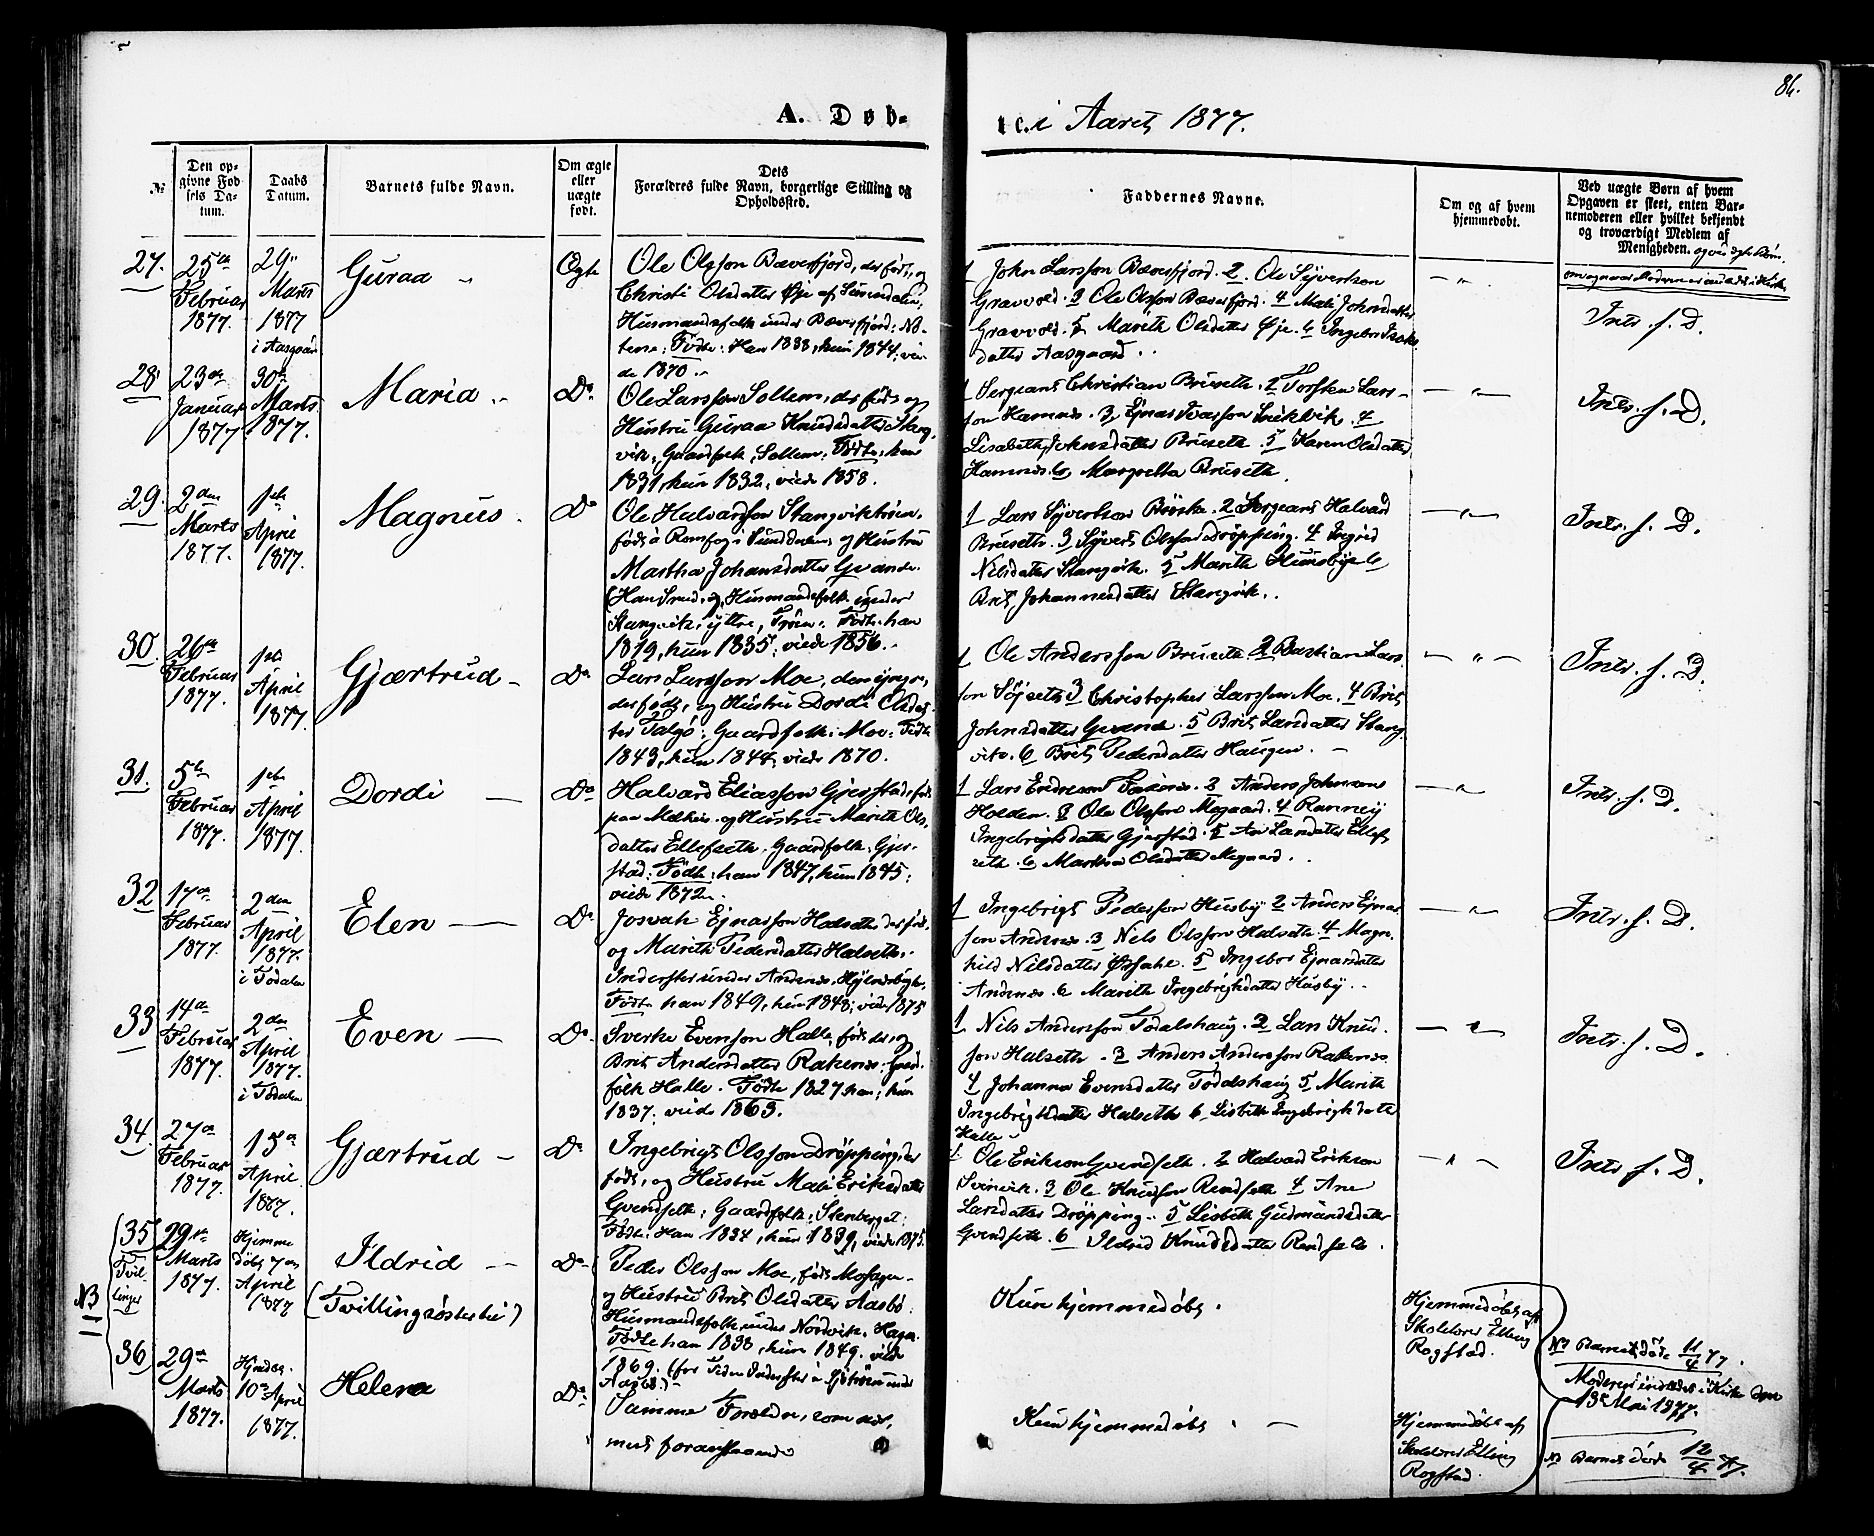 86.
A. Døb-
te. i Aaret 1877.
№
Den op-
givne Fød-
sels Da-
tum.
Daabs
Datum.
Barnets fulde Navn.
Om ægte
eller
uægte
født.
Dets
Forældres fulde Navn, borgerlige Stilling og
Opholdssted.
Faddernes Navne.
Om og af hvem
hjemmedøbt.
Ved uægte Børn af hvem
Opgaven er skeet, enten Bar-
nemoderen eller hvilket bekjendt
og troværdigt Medlem af
Menigheden.
27.
25de
Februar
1877.
29
Marts
1877
Guraa
Ægte
Ole Olsson Bæverfjord, der født, og
Christi Olsdatter Øje af Surendalen,
Husmandsfolk under Bæverfjord:
Fødte: Han 1838, hun 1844; vie-
de 1870.
1 John Larsson Bæverfjord. 2 Ole Syvertson
Gravvold. 3 Ole Olsson Bæverfjord. 4 Mali Johnsdatter
Gravvold. 5 Marith Olsdatter Øje. 6
datter Aasgaard.
Intr. f. D.
28
23de
Januar
1877
30te
Marts
1877.
Maria
Do
Ole Larsson Sollem, der født og
Hustru Guraa Knudsdatter Stang-
vik, Gaardfolk, Sollem. Fødte: han
1831, hun 1832, viede 1858.
1 Sergeant Christian Bruseth. 2 Torsten Lars-
son Hamnes. 3 Ejnar 4
Lisabeth Johnsdatter Bruseth. 5 Karen Olsdatter
Hamnes. 6 Margretha Bruseth.
Intr. f. D.
29.
2den
Marts
1877.
1ste
April
1877.
Magnus
Do
Ole Halvardson Stangviktrøen,
født à Romfog i Sunddalen og Hustru
Martha Johansdatter Qvande.
Husmandsfolk under
Stangvik, yttre, Trøen. Fødte: han
1819, hun 1835, viede 1856.
1 Lars Syvertson 2 Sergeant Halvard
Bruseth. 3 Syvert Olsson Drøpping. 4 Ingrid
Nilsdatter Stangvik. 5 Marith Hunsbye 6
Brit Johannesdatter Stangvik.
Intr. f. D.
30.
26de
Februar
1877.
1ste
April
1877.
Gjærtrud
Do
Lars Larsson Moe,
der født, og Hustru Dordi Olsdat-
ter Talgø: Gaardfolk: Moe: Fødte
1843, hun 1844, viede 1870.
1 Ole Andersson Bruseth. 2 Bastian Lars-
son Søjseth 3 Christopher Larsson Moe. 4 Brit
Johnsdatter Qvande. 5 Brit Larsdatter Stang-
vik. 6 Brit Pedersdatter Haugen.
Intr. f. D.
31.
5te
Februar
1877.
1ste
April
1877.
Dordi
Do
Halvard Eliasson Gjerstad, født
paa Melhus og Hustru Marith Ols-
datter Ellefseth. Gaardfolk: Gjer-
stad. Fødte: han 1847, hun 1845;
viede 1872.
1 Lars Endresson 2 Anders Johnsson
Holden. 3 Ole Olsson Mogaard. 4 Rannøy
Ingebrigtsdatter Gjerstad. 5 Ane Larsdatter Ellef-
seth. 6 Martha Olsdatter Mogaard.
Intr. f. D.
32
17de
Februar
1877.
2den
April
1877.
i Tødalen
Elen
Do
Josvah Ejnarsson Halseth, der født,
og Marith Pedersdatter Halseth.
Inderster under Andenæs,
Fødte han 1849, hun 1848; viede 1875
1 Ingebrigt Pedersson Husby 2 Anders Ejnar-
son Andenæs. 3 Nils Olsson Halseth. 4 Magn-
hild Nilsdatter 5 Ingebor Ejnarsdatter
Andenæs. 6 Marith Ingebrigtsdatter Husby.
Intr. f. D.
33
14de
Februar
1877.
2den
April
1877.
i Tødalen
Even
Do
Sverke Evensson Halle, født der, og
Brit Andersdatter Rakenes: Gaard-
folk Halle. Fødte 1827 han; hun
1837. viede 1863.
1 Nils Andersson Tødalshaug. 2 Lars Knud-
son Halseth. 3 Anders Andersson Rakenes
4 Johanna Evensdatter Tødalshaug 5 Marith
Ingebrigtsdatter Halseth 6 Lisbeth Ingebrigtsdatter
Halle.
Intr. f. D.
34.
27de
Februar
1877.
15de
April
1877.
Gjærtrud
Do
Ingebrigt Olsson Drøpping, der
født, og Hustru Mali Eriksdatter
Qvendseth; Gaardfolk: Stenberget:
Fødte: Han 1834, hun 1839, viede 1875.
1. Ole Eriksson Qvendseth. 2 Halvard Erikson
Svinvik. 3 Ole Knudson Rendseth 4 Ane
Larsdatter Drøpping. 5 Lisbeth Gudmundsdatter
Qvendseth. 6 Ildrid Knudsdatter Rendseth.
Intr. f. D.
NB
35
Tvil-
linger
29de
Marts
1877.
Hjemme
døbt 7de
April
1877
Ildrid
(Tvillingsøster bei)
Do
Peder Olsson Moe, født
og Hustru Brit Olsdatter Aasbø:
Husmandsfolk under Nordvik.
Fødte han 1838, hun 1849. viede
1869.
Kun hjemmedøbt.
Hjemmedøbt af
Skolelærer Elling
Rogstad.
NB Barnet døde 11/4 77.
Moderen indledet i Kirke den
13de Mai 1877.
36
29de
Marts
1877.
10de April
1877.
Helena
Do
Samme Forældre, som nær-
mest foranstaaende
Kun hjemmedøbt.
Hjemmedøbt af
Skolelærer Elling
Rogstad.
NB Barnet døde 12/4 77.